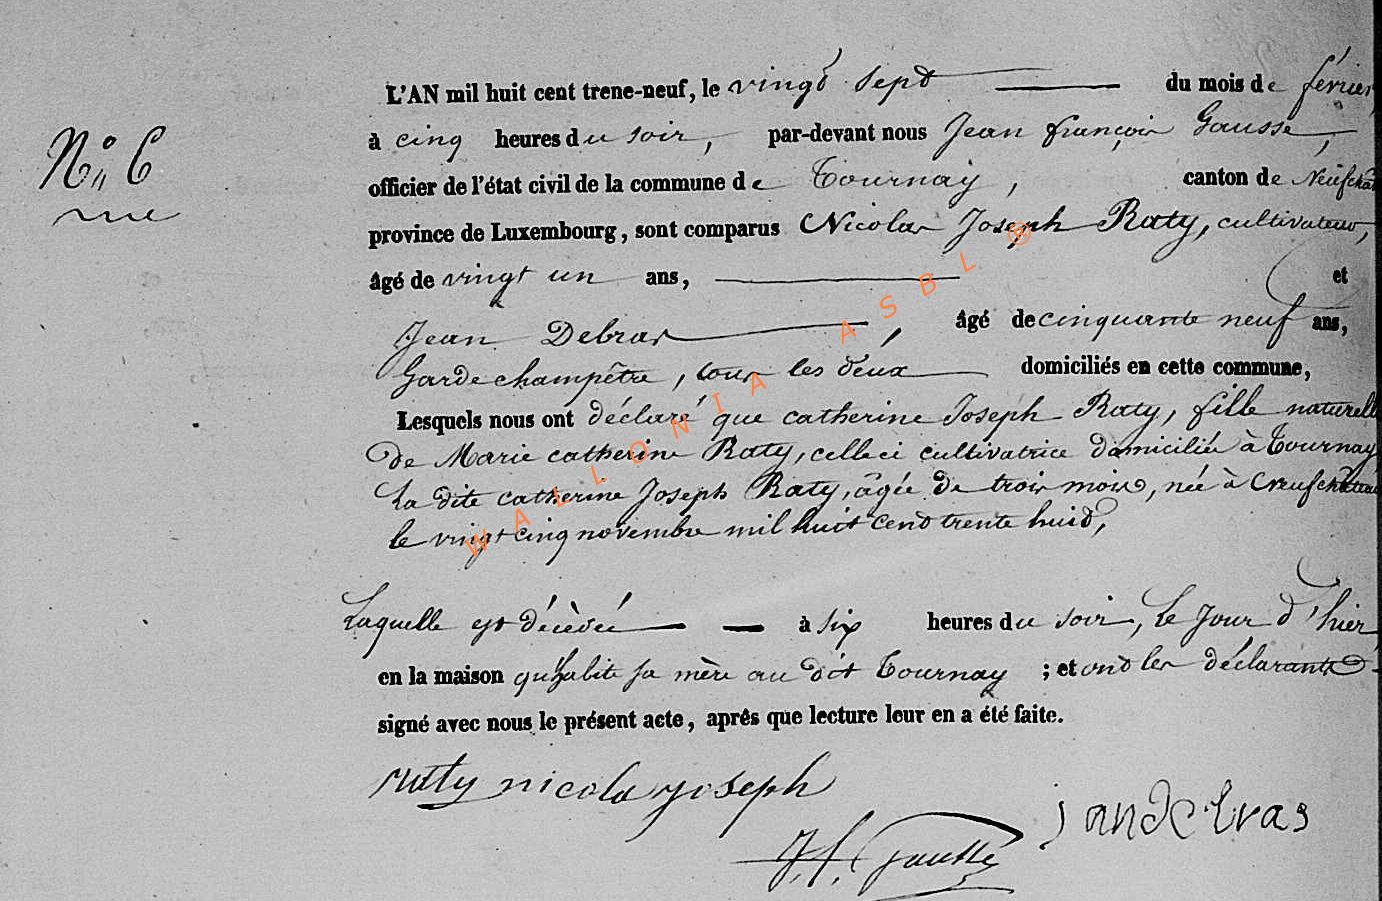 L'AN mil huit cent trene-neuf, le vingt sept du mois de février
N° 6
à cinq heures du soir, par-devant nous Jean françois Gausse,
officier de l'état civil de la commune de Tournay, canton de Neufchât
province de Luxembourg, sont comparus Nicolas Joseph Raty, cultivateur,
âgé de vingt un ans, et
Jean Debras, âgé de cinquante neuf ans,
Garde champêtre, tous les deux domiciliés en cette commune,
Lesquels nous ont déclaré que catherine Joseph Raty, fille naturelle
de Marie catherine Raty, celle ci cultivatrice domiciliée à Tournay
La dite catherine Joseph Raty, âgée de trois mois, née à Neufchateau
le vingt cinq novembre mil huit cent trente huit,
Laquelle est décédée à six heures du soir, le jour d'hier
en la maison qu'habite sa mère au dit Tournay ; et ont les déclarants
signé avec nous le présent acte, aprês que lecture leur en a été faite.
raty nicola joseph
jandebras
J. f. Gausse
WALLONIA ASBL ®